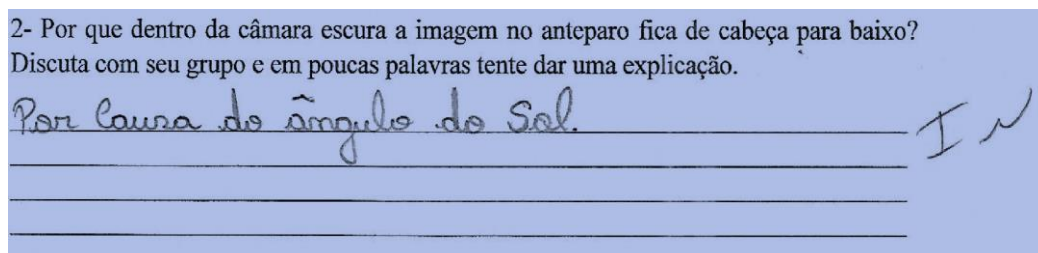 2- Por que dentro da câmara escura a imagem no anteparo fica de cabeça para baixo?
Discuta com seu grupo e em poucas palavras tente dar uma explicação.
Por Causa do ângulo do Sol.
I N